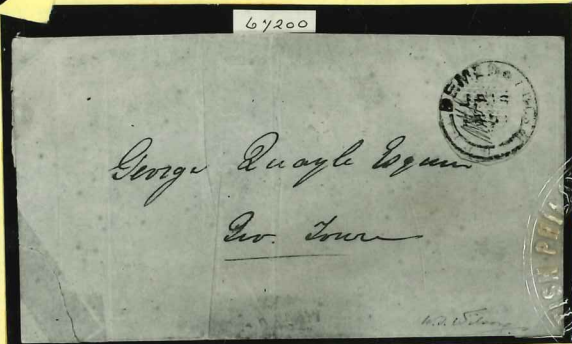 67200
DEMERARA
George Quayle Esquire
Geo. Town